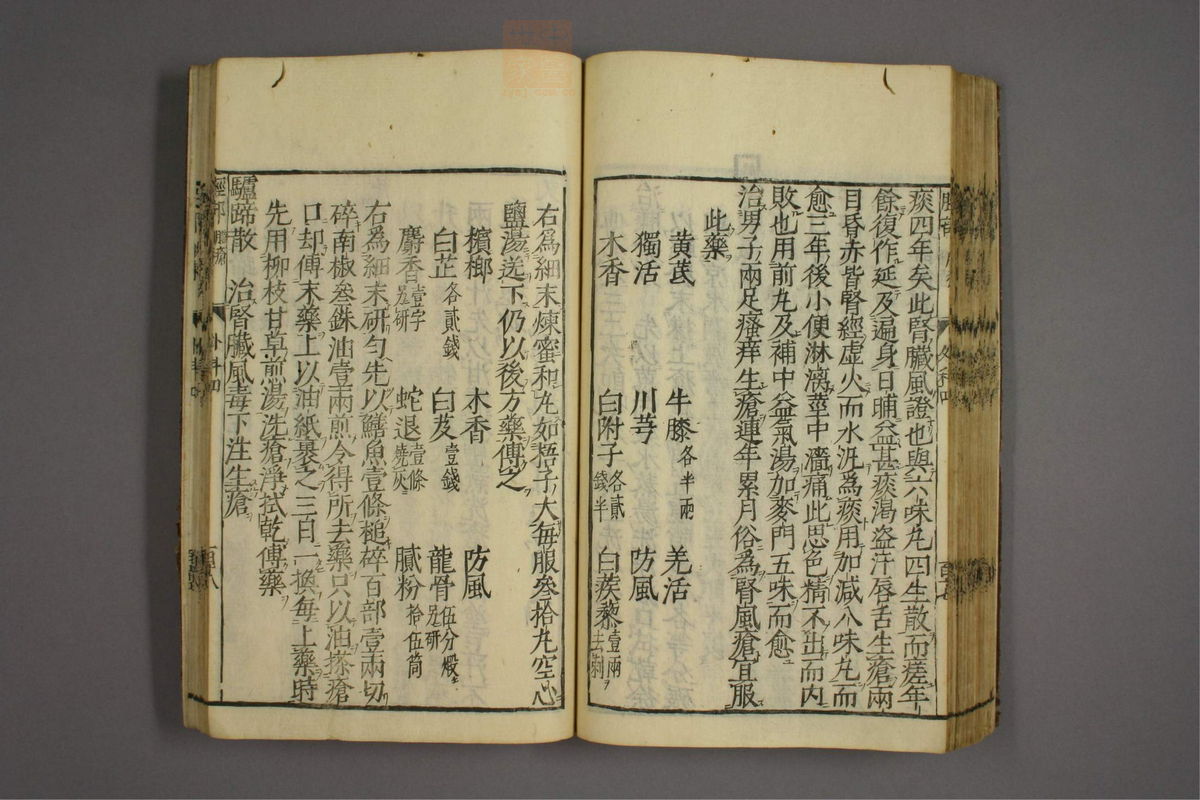 痰四年矣此腎臟風證也與六味丸四生散而瘥年
餘復作延及遍身日晡益甚痰渴盗汗唇舌生瘡兩
目昏赤皆腎經虚火而水汎為痰用加減八味丸而
愈三年後小便淋漓莖中濇痛此思色精不出而内
敗也用前丸及補中益氣湯加麥門五味而愈
治男子兩足瘙痒生瘡連年累月俗為腎風瘡宜服
此藥
黄芪 牛膝各半兩 羌活
獨活 川芎 防風
木香 白附子各貳錢半 白蒺藜壹兩去刺
右為細末煉蜜和丸如梧子大毎服參拾丸空心
鹽湯送下仍以後方藥傅之
檳榔 木香 防風
白芷各貳錢 白芨壹錢 龍骨伍分煅另研
麝香壹字另研 蛇退壹條燒灰 膩粉拾伍筒
右為細末研匀先以鱔魚壹條槌碎百部壹兩切
碎南椒叁銖油壹兩煎令得所去藥只以油搽瘡
口却傅末藥上以油紙裹之三日一換毎上藥時
先用柳枝甘草煎湯洗瘡淨拭乾傅藥
驢蹄散 治腎臟風毒下注生瘡
外科四
百八